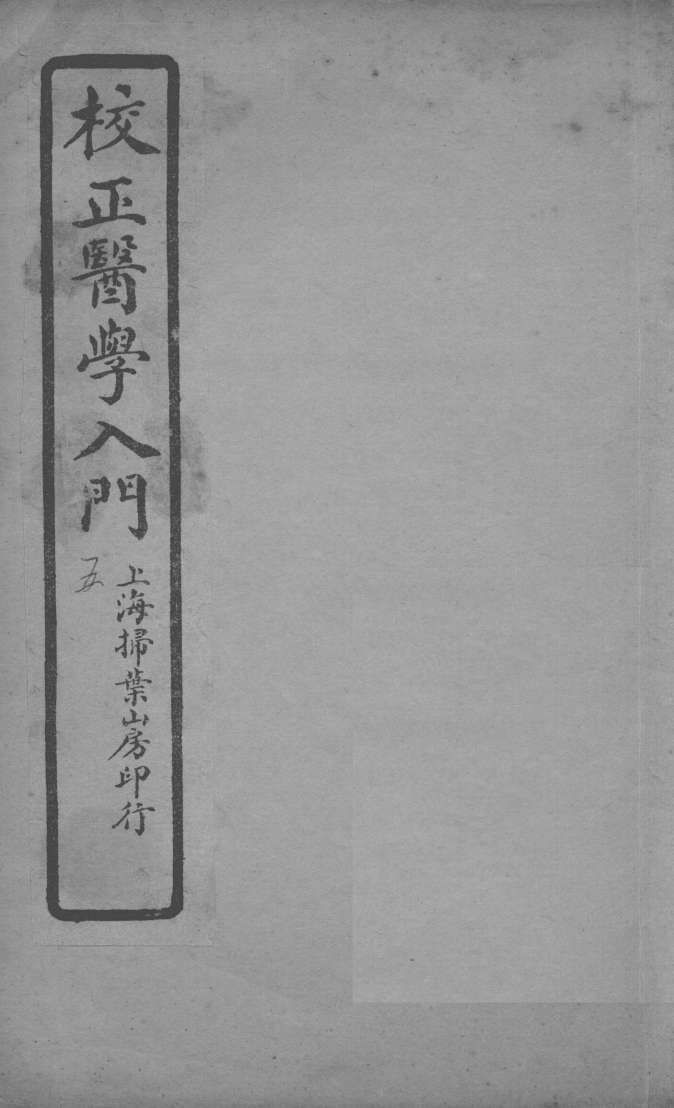 校正醫學入門
上海掃葉山房印行
五